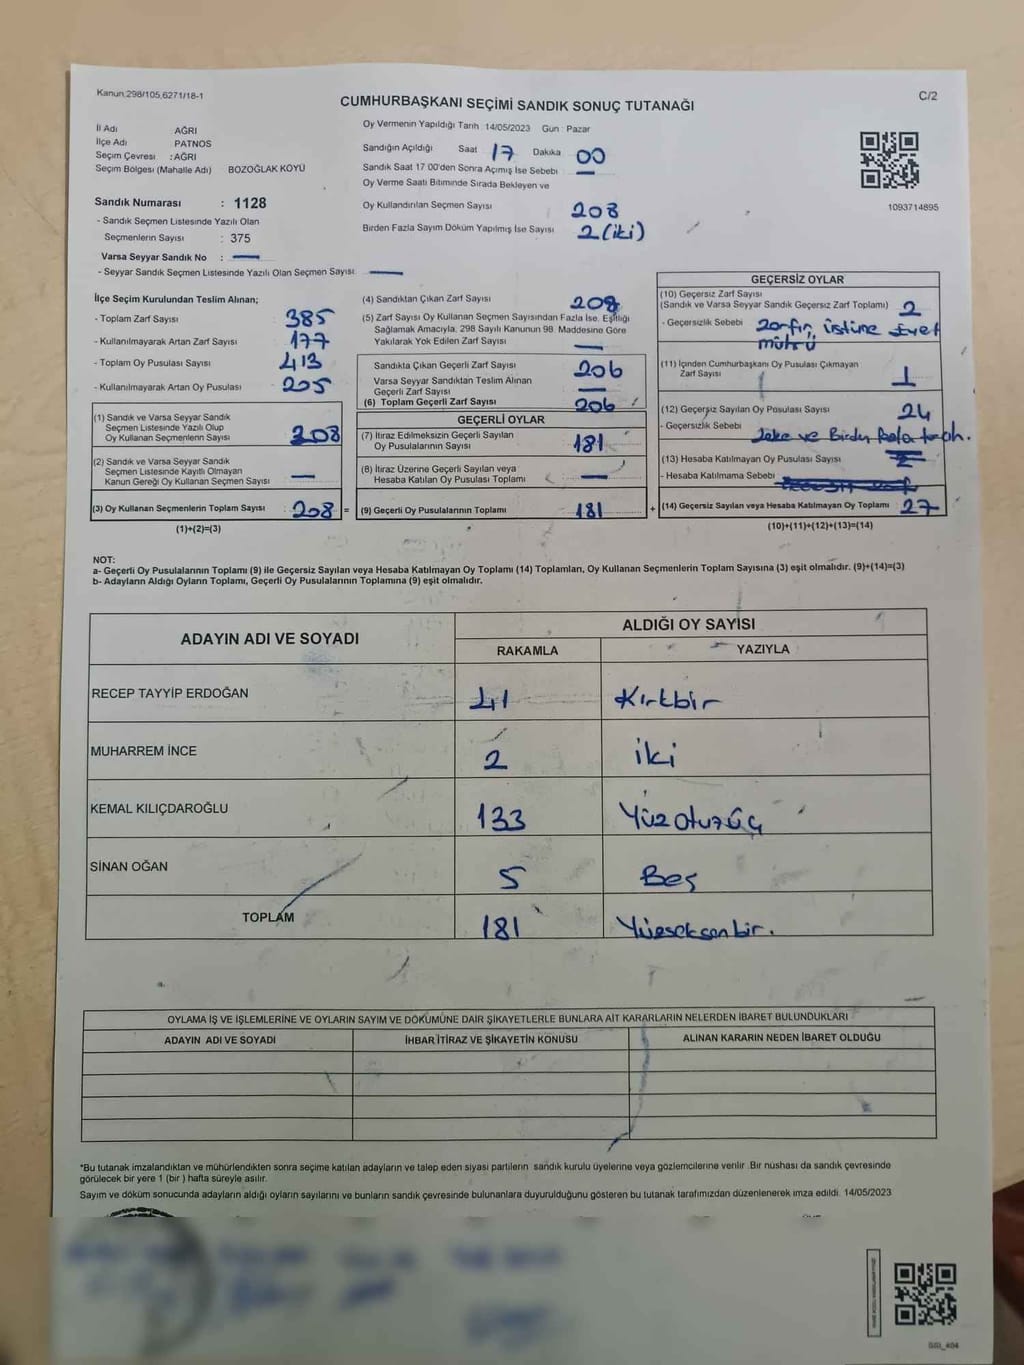 Kanun 298/105,6271/18-1
C/2
CUMHURBAŞKANI SEÇİMİ SANDIK SONUÇ TUTANAĞI
İl Adı AĞRI
İlçe Adı PATNOS
Seçim Çevresi : AĞRI
Seçim Bölgesi (Mahalle Adı) BOZOĞLAK KÖYÜ
Sandık Numarası : 1128
- Sandık Seçmen Listesinde Yazılı Olan
Seçmenlerin Sayısı : 375
Varsa Seyyar Sandık No : —
- Seyyar Sandık Seçmen Listesinde Yazılı Olan Seçmen Sayısı —
Oy Vermenin Yapıldığı Tarih 14/05/2023 Gün : Pazar
Sandığın Açıldığı Saat 17 Dakika 00
Sandık Saat 17 00'den Sonra Açımış İse Sebebi —
Oy Verme Saati Bitiminde Sırada Bekleyen ve
Oy Kullandırılan Seçmen Sayısı 208
Birden Fazla Sayım Döküm Yapılmış İse Sayısı 2 (iki)
1093714895
İlçe Seçim Kurulundan Teslim Alınan;
- Toplam Zarf Sayısı : 385
- Kullanılmayarak Artan Zarf Sayısı : 177
- Toplam Oy Pusulası Sayısı : 413
- Kullanılmayarak Artan Oy Pusulası : 205
(1) Sandık ve Varsa Seyyar Sandık
Seçmen Listesinde Yazılı Olup
Oy Kullanan Seçmenlerin Sayısı : 208
(2) Sandık ve Varsa Seyyar Sandık
Seçmen Listesinde Kayıtlı Olmayan
Kanun Gereği Oy Kullanan Seçmen Sayısı : —
(3) Oy Kullanan Seçmenlerin Toplam Sayısı : 208 =
(1)+(2)=(3)
(4) Sandıktan Çıkan Zarf Sayısı 208
(5) Zarf Sayısı Oy Kullanan Seçmen Sayısından Fazla İse, Eşitliği
Sağlamak Amacıyla, 298 Sayılı Kanunun 98. Maddesine Göre
Yakılarak Yok Edilen Zarf Sayısı —
Sandıkta Çıkan Geçerli Zarf Sayısı 206
Varsa Seyyar Sandıktan Teslim Alınan
Geçerli Zarf Sayısı —
(6) Toplam Geçerli Zarf Sayısı 206
GEÇERLİ OYLAR
(7) İtiraz Edilmeksizin Geçerli Sayılan
Oy Pusulalarının Sayısı 181
(8) İtiraz Üzerine Geçerli Sayılan veya
Hesaba Katılan Oy Pusulası Toplamı —
(9) Geçerli Oy Pusulalarının Toplamı 181 +
GEÇERSİZ OYLAR
(10) Geçersiz Zarf Sayısı
(Sandık ve Varsa Seyyar Sandık Geçersiz Zarf Toplamı) 2
- Geçersizlik Sebebi : Zarfın üstüne Evet
mührü
(11) İçinden Cumhurbaşkanı Oy Pusulası Çıkmayan
Zarf Sayısı 1
(12) Geçersiz Sayılan Oy Pusulası Sayısı 24
- Geçersizlik Sebebi : leke ve Birden fazla tercih.
(13) Hesaba Katılmayan Oy Pusulası Sayısı
- Hesaba Katılmama Sebebi
(14) Geçersiz Sayılan veya Hesaba Katılmayan Oy Toplamı : 27
(10)+(11)+(12)+(13)=(14)
NOT:
a- Geçerli Oy Pusulalarının Toplamı (9) ile Geçersiz Sayılan veya Hesaba Katılmayan Oy Toplamı (14) Toplamları, Oy Kullanan Seçmenlerin Toplam Sayısına (3) eşit olmalıdır. (9)+(14)=(3)
b- Adayların Aldığı Oyların Toplamı, Geçerli Oy Pusulalarının Toplamına (9) eşit olmalıdır.
ADAYIN ADI VE SOYADI ALDIĞI OY SAYISI
RAKAMLA YAZIYLA
RECEP TAYYİP ERDOĞAN 41 Kırkbir
MUHARREM İNCE 2 iki
KEMAL KILIÇDAROĞLU 133 Yüzotuzüç
SİNAN OĞAN 5 Beş
TOPLAM 181 Yüzseksenbir.
OYLAMA İŞ VE İŞLEMLERİNE VE OYLARIN SAYIM VE DÖKÜMÜNE DAİR ŞİKAYETLERLE BUNLARA AİT KARARLARIN NELERDEN İBARET BULUNDUKLARI
ADAYIN ADI VE SOYADI İHBAR İTİRAZ VE ŞİKAYETİN KONUSU ALINAN KARARIN NEDEN İBARET OLDUĞU
*Bu tutanak imzalandıktan ve mühürlendikten sonra seçime katılan adayların ve talep eden siyasi partilerin sandık kurulu üyelerine veya gözlemcilerine verilir. Bir nüshası da sandık çevresinde
görülecek bir yere 1 (bir ) hafta süreyle asılır.
Sayım ve döküm sonucunda adayların aldığı oyların sayılarını ve bunların sandık çevresinde bulunanlara duyurulduğunu gösteren bu tutanak tarafımızdan düzenlenerek imza edildi. 14/05/2023